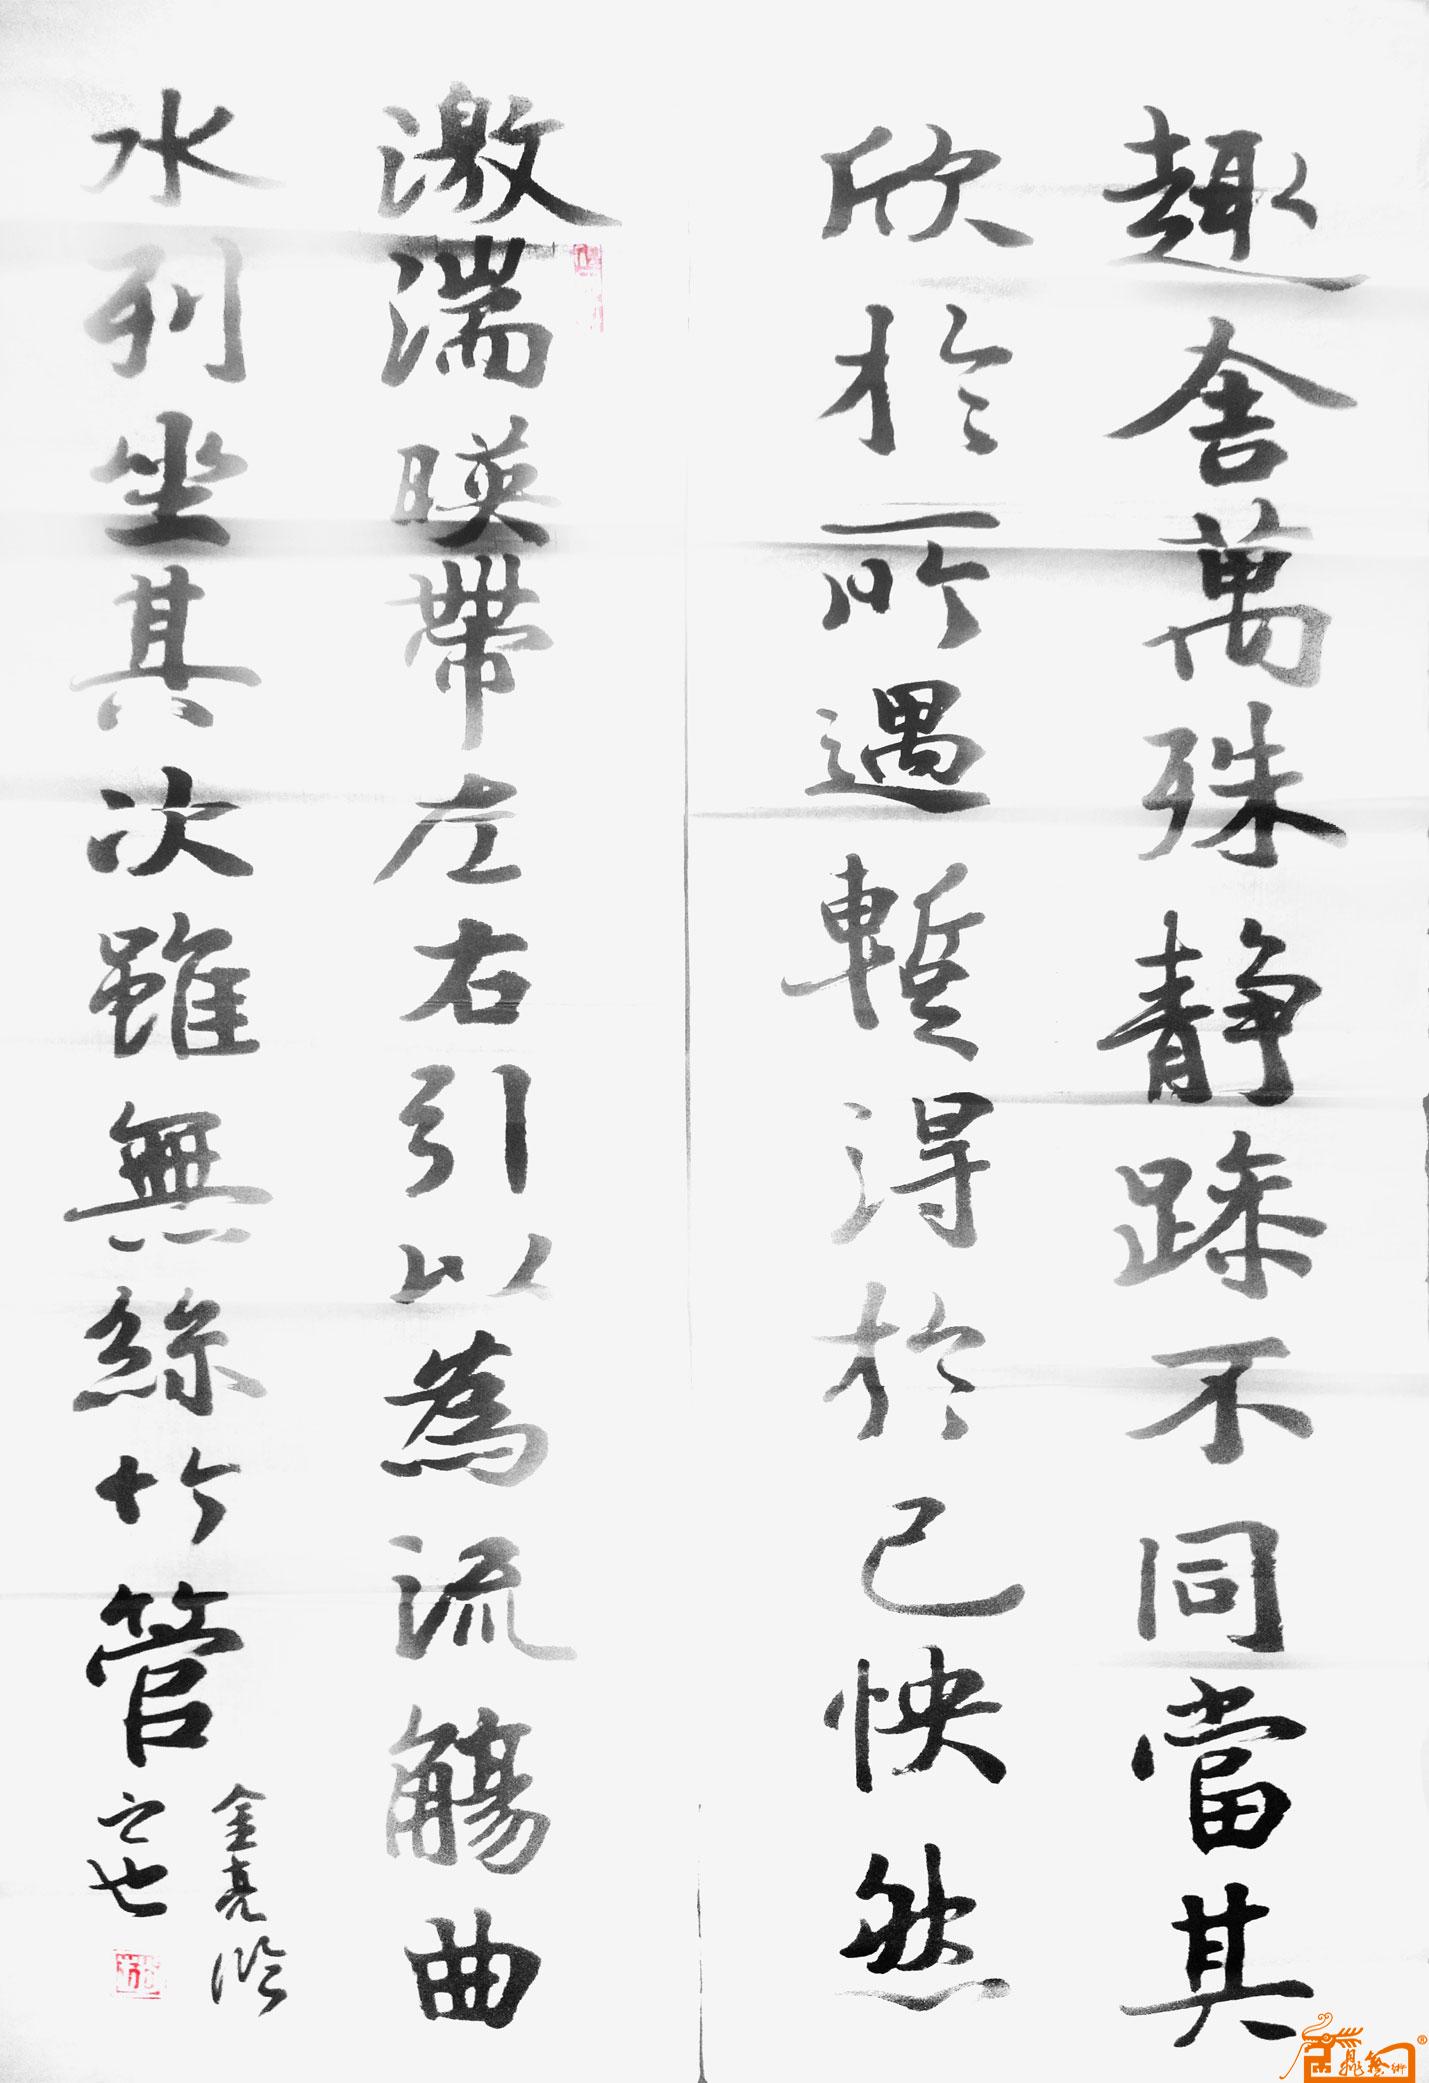 趣舍萬殊靜躁不同當其
欣於所遇暫得於己怏然
激湍暎帶左右引以為流觴曲
水列坐其次雖無絲竹管
之也
金亮